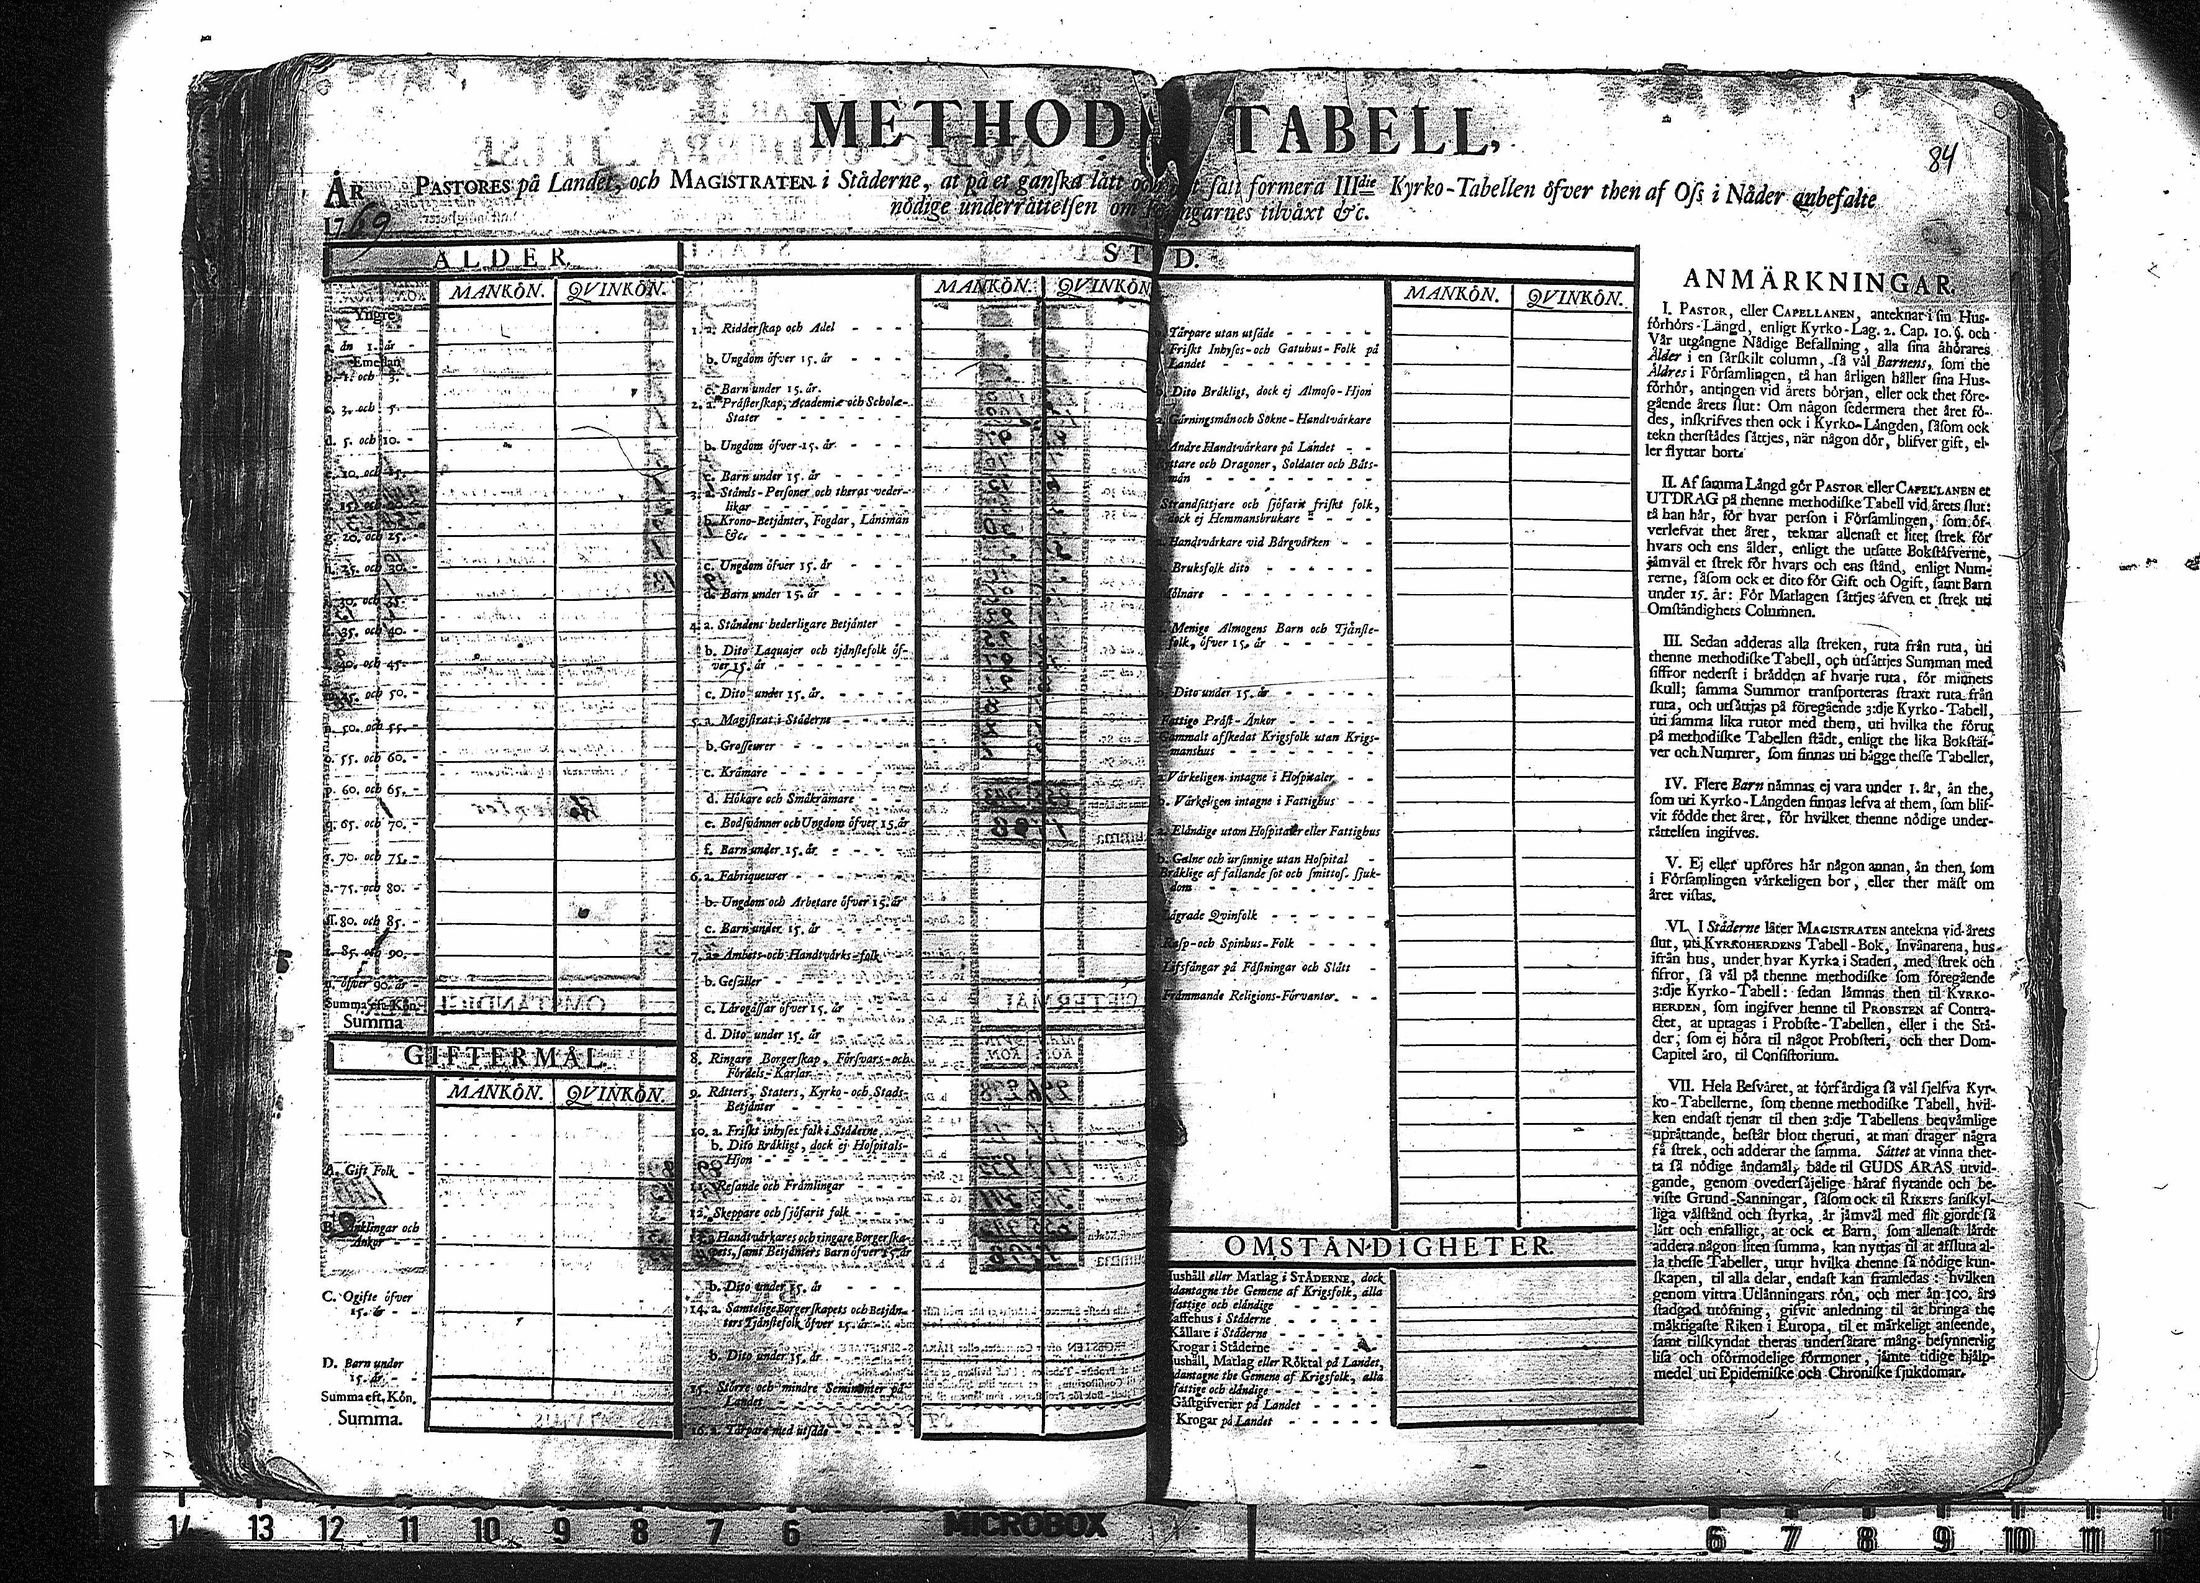 METHOD TABELL,
84
ÅR
1769
PASTORES på Landet, och MAGISTRATEN i Ståderne, at på et ganska lått sått formera IIIdie Kyrko-Tabellen öfver then af Oss i Nåder anbefalte
nödige underråttelsen om tilvåxt &c.
ÅLDER.
MANKÖN. QVINKÖN.
Yngre
än 1. år
Emellan
1. och 3.
3. och 5.
d. 5. och 10.
10. och 15.
20. och 25.
25. och 30.
30. och 35.
35. och 40.
40. och 45.
45. och 50.
50. och 55.
55. och 60.
60. och 65.
65. och 70.
70. och 75.
75. och 80.
80. och 85.
85. och 90.
öfver 90. år
Summa eft. Kön.
Summa
GIFTERMÅL
MANKÖN. QVINKÖN.
A. Gift Folk
B. Änklingar och
Änkor
C. Ogifte öfver
15. år
D. Barn under
15. år
Summa eft. Kön.
Summa.
ST D.
MANKÖN. QVINKÖN
1. a. Ridderskap och Adel
b. Ungdom öfver 15. år
c. Barn under 15. år.
2. a. Pråsterskap, Academiæ och Scholæ-
Stater
b. Ungdom öfver 15. år
c. Barn under 15. år
3. a. Stånds-Personer och theras veder-
likar
b. Krono-Betjånter, Fogdar, Lånsmån
&c.
c. Ungdom öfver 15. år
d. Barn under 15. år
4. a. Ståndens hederligare Betjånter
b. Dito Laquajer och tjånstefolk öf-
ver 15. år
c. Dito under 15. år.
5. a. Magistrat i Ståderne
b. Grosseurer
c. Kråmare
d. Hökare och Småkråmare
e. Bodsvånner och Ungdom öfver 15. år
f. Barn under 15. år
6. a. Fabriqueurer
b. Ungdom och Arbetare öfver 15. år
c. Barn under 15. år
7. a. Åmbets- och Handtvårks-folk
b. Gesåller
c. Lårogåssar öfver 15. år
d. Dito under 15. år
8. Ringare Borgerskap, Försvars- och
Fördels-Karlar
9. Råtters, Staters, Kyrko- och Stads-
Betjånter
10. a. Friskt inhyses folk i Ståderne
b. Dito Bråkligt, dock ej Hospitals-
Hjon
11. Resande och Fråmlingar
12. Skeppare och sjöfarit folk
13. a. Handtvårkares och ringare Borgerska-
pets, samt Betjånters Barn öfver 15. år
b. Dito under 15. år
14. a. Samtelige Borgerskapets och Betjån-
ters Tjånstefolk öfver 15. år
b. Dito under 15. år
15. Större och mindre Seminanter på
Landet
16. a. Torpare med utsåde
MANKÖN. QVINKÖN.
Torpare utan utsåde
Friskt Inhyses- och Gatuhus-Folk på
Landet
Dito Bråkligt, dock ej Almoso-Hjon
Gårningsmån och Sokne-Handtvårkare
Andre Handtvårkare på Landet
Ryttare och Dragoner, Soldater och Båts-
mån
Strandsittjare och sjöfarit friskt folk,
dock ej Hemmansbrukare
Handtvårkare vid Bårgvårken
Bruksfolk dito
Mölnare
Menige Almogens Barn och Tjånste-
folk, öfver 15. år
Dito under 15. år
Fattige Pråst-Änkor
Gammalt afskedat Krigsfolk utan Krigs-
manshus
Vårkeligen intagne i Hospitaler
b. Vårkeligen intagne i Fattighus
Elåndige utom Hospitaler eller Fattighus
b. Galne och ursinnige utan Hospital
Bråklige af fallande sot och smittos. sjuk-
dom
Lågrade Qvinfolk
Rasp- och Spinhus-Folk
Lifsfångar på Fåstningar och Slått
Fråmmande Religions-Förvanter.
OMSTÄNDIGHETER.
Hushåll eller Matlag i STÅDERNE, dock
undantagne the Gemene af Krigsfolk, alla
fattige och elåndige
Caffehus i Ståderne
Kållare i Ståderne
Krogar i Ståderne
Hushåll, Matlag eller Röktal på Landet,
undantagne the Gemene af Krigsfolk, alla
fattige och elåndige
Gåstgifverier på Landet
Krogar på Landet
ANMÄRKNINGAR.
I. PASTOR, eller CAPELLANEN, anteknar i sin Hus-
förhörs-Långd, enligt Kyrko-Lag. 2. Cap. 10. §. och
Vår utgångne Nådige Befallning, alla sina åhörares
Ålder i en sårskilt column, så vål Barnens, som the
Åldres i Församlingen, tå han årligen håller sina Hus-
förhör, antingen vid årets början, eller ock thet före-
gående årets slut: Om någon sedermera thet året fö-
des, inskrifves then ock i Kyrko-Långden, såsom ock
tekn therstådes såttjes, når någon dör, blifver gift, el-
ler flyttar bort.
II. Af samma Långd gör PASTOR eller CAPELLANEN et
UTDRAG på thenne methodiske Tabell vid årets slut:
tå han hår, för hvar person i Församlingen, som öf-
verlefvat thet året, teknar allenast et litet strek för
hvars och ens ålder, enligt the utsatte Bokståfverne,
jåmvål et strek för hvars och ens stånd, enligt Num-
rerne, såsom ock et dito för Gift och Ogift, samt Barn
under 15. år: För Matlagen såttjes åfven et strek uti
Omståndighets Columnen.
III. Sedan adderas alla streken, ruta från ruta, uti
thenne methodiske Tabell, och utsåttjes Summan med
siffror nederst i brådden af hvarje ruta, för minnets
skull; samma Summor transporteras straxt ruta från
ruta, och utsåttjas på föregående 3:dje Kyrko-Tabell,
uti samma lika rutor med them, uti hvilka the förut
på methodiske Tabellen stådt, enligt the lika Bokståf-
ver och Numrer, som finnas uti bågge thesse Tabeller,
IV. Flere Barn nåmnas ej vara under 1. år, ån the,
som uti Kyrko-Långden finnas lefva af them, som blif-
vit födde thet året, för hvilket thenne nödige under-
råttelsen ingifves.
V. Ej eller upföres hår någon annan, ån then, som
i Församlingen vårkeligen bor, eller ther måst om
året vistas.
VI. I Ståderne låter MAGISTRATEN antekna vid årets
slut, uti KYRKOHERDENS Tabell-Bok, Invånarena, hus
ifrån hus, under hvar Kyrka i Staden, med strek och
siffror, så vål på thenne methodiske som föregående
3:dje Kyrko-Tabell: sedan låmnas then til KYRKO-
HERDEN, som ingifver henne til PROBSTEN af Contra-
ctet, at uptagas i Probste-Tabellen, eller i the Stå-
der, som ej höra til något Probsteri, och ther Dom-
Capitel åro, til Consistorium.
VII. Hela Besvåret, at förfårdiga så vål sjelfva Kyr-
ko-Tabellerne, som thenne methodiske Tabell, hvil-
ken endast tjenar til then 3:dje Tabellens beqvåmlige
upråttande, beståår blott theruti, at man drager några
få strek, och adderar the samma. Såttet at vinna thet-
ta så nödige åndamål, både til GUDS ÅRAS utvid-
gande, genom ovedersåjelige håraf flytande och be-
viste Grund-Sanningar, såsom ock til RIKETS sanskyl-
liga vålstånd och styrka, år jåmvål med flit gjordt så
lått och enfalligt, at ock et Barn, som allenast lårdt
addera någon liten summa, kan nyttjas til at afsluta al-
la thesse Tabeller, utur hvilka thenne så nödige kun-
skapen, til alla delar, endast kan framledas: hvilken
genom vittra Utlånningars rön, och mer ån 100. års
stadgad utöfning, gifvit anledning til at bringa the
måktigaste Riken i Europa, til et mårkeligt anseende,
samt tilskyndat theras undersåtare mång besynnerlig
lisa och oförmodelige förmoner, jåmte tidige hjålp-
medel uti Epidemiske och Chroniske sjukdomar.
14 13 12 11 10 9 8 7 6
MICROBOX
6 7 8 9 10 11